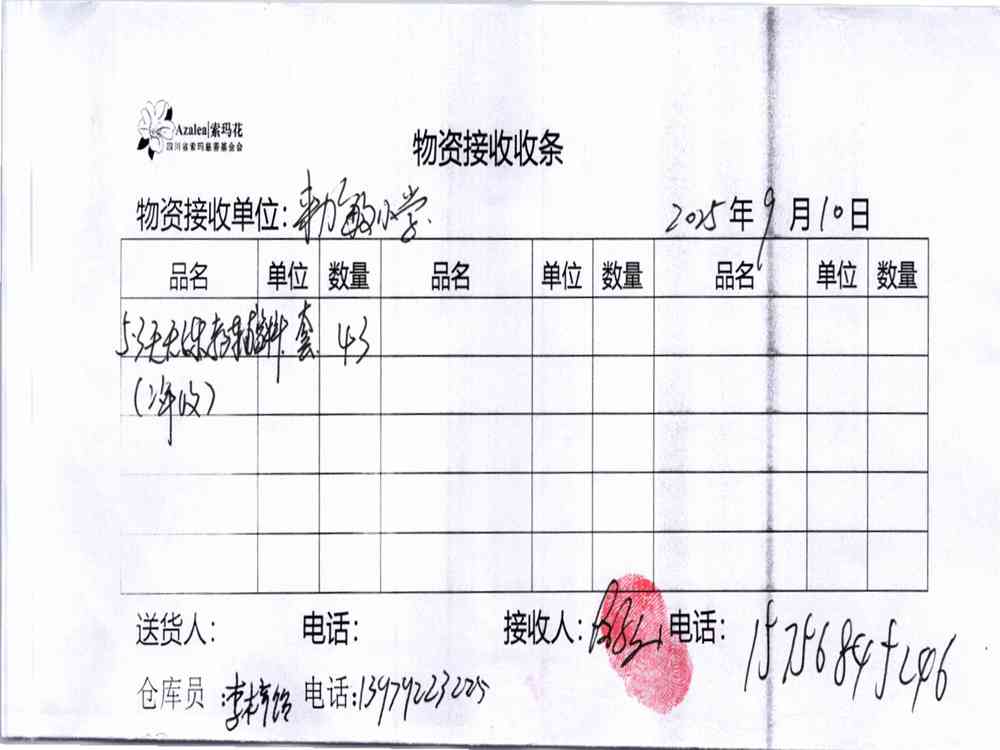 Azalea|索玛花
四川省索玛慈善基金会
物资接收收条
物资接收单位：勒敏小学 2025年9月10日
品名 单位 数量 品名 单位 数量 品名 单位 数量
5·3天天练 套 43
送货人： 电话： 接收人： 电话：15756845246
仓库员：李梓铭 电话：13979223225